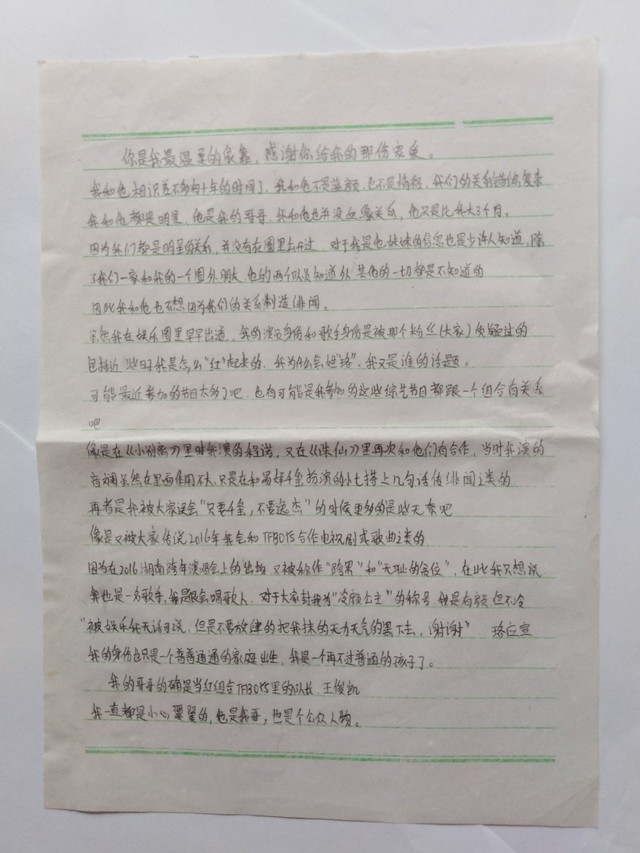 你是我最温柔的家人,感谢你给我的那份宠爱。
我和他相识差不多有十年的时间了,我和他不是 也不是情侣,我们的关系
我和他都是明星,他是我的哥哥,我和他也并没血缘关系,他只是比我大3个月。
因为我们都是明星的关系,并没有在圈里公开过,对于我是他妹妹的信息也是少许人知道,除
了我们一家和我的一个圈外朋友,他的两个队友知道外,其他的一切都是不知道的
因此我和他也不想因为我们的关系制造绯闻。
虽然我在娱乐圈里早早出道,我的演员身份和歌手身份是被那个粉丝(大家)质疑过的
包括近些日子我是怎么"红"起来的、我为什么会 ,我又是谁的话题。
可能最近参加的节目太多了吧,也有可能是我参加的这些综艺节目都跟一个组合有关系
吧
像是在《小别离》里时我演的 ,又在《诛仙》里再次和他们有合作,当时我演的
虽然在里面作用不大,只是在和易烊千玺扮演的 搭上几句话传绯闻之类的
再者是我被大家误会"只要千玺,不要逸杰"的时候更多的是些无奈吧
像是又被大家传说2016年我会和TFBOYS合作电视剧或歌曲之类的
因为在2016湖南跨年演唱会上的 又被称作" "和"无耻的 位",在此我只想说
我也是一名歌手,我是很会唱歌人,对于大家封我为"冷颜公主"的称号,但是有颜但不冷
"被娱乐我无话可说,但是不要放肆的把我抹的无力天气的黑下去,谢谢" 珞应宣
我的身份也只是一个普普通通的家庭出生,我是一个再不过普通的孩子了。
我的哥哥的确是当红组合TFBOYS里的队长 王俊凯
我一直都是小心翼翼的,他是我哥,也是个公众人物。